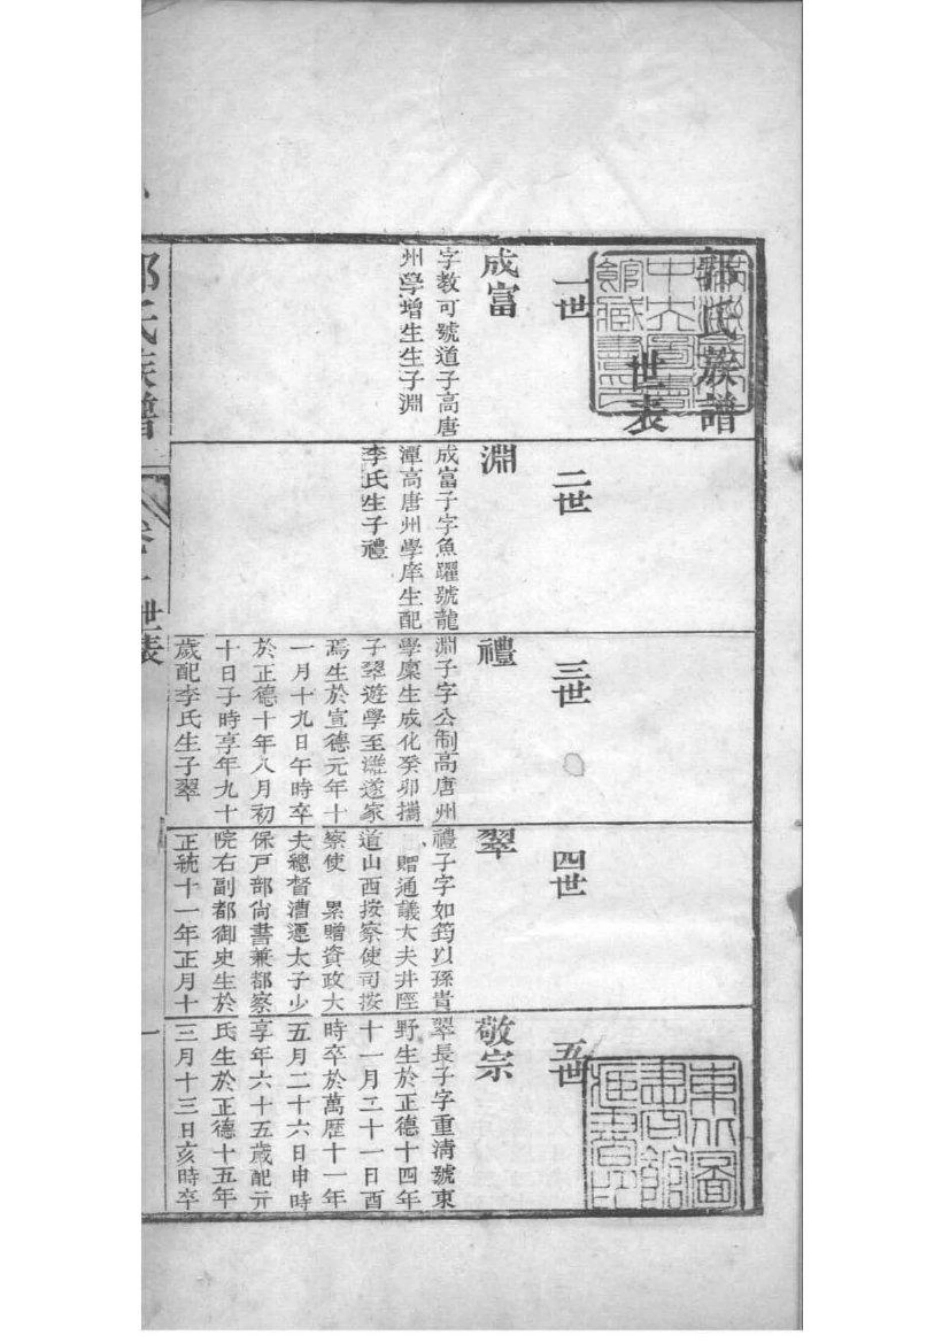 郭氏族譜
世表
一世
成富
字教可號道子高唐
州學增生生子淵
二世
淵
成富子字魚躍號龍
潭高唐州學庠生配
李氏生子禮
三世
禮
淵子字公制高唐州
學廩生成化癸卯攜
子翠遊學至濰遂家
焉生於宣德元年十
一月十九日午時卒
於正德十年八月初
十日子時享年九十
歲配李氏生子翠
四世
翠
禮子字如筠以孫貴
贈通議大夫井陘
道山西按察使司按
察使 累贈資政大
夫總督漕運太子少
保戸部尚書兼都察
院右副都御史生於
正統十一年正月十
五世
敬宗
翠長子字重清號東
野生於正德十四年
十一月二十一日酉
時卒於萬歷十一年
五月二十六日申時
享年六十五歲配亓
氏生於正德十五年
三月十三日亥時卒
郭氏族譜
世表
一